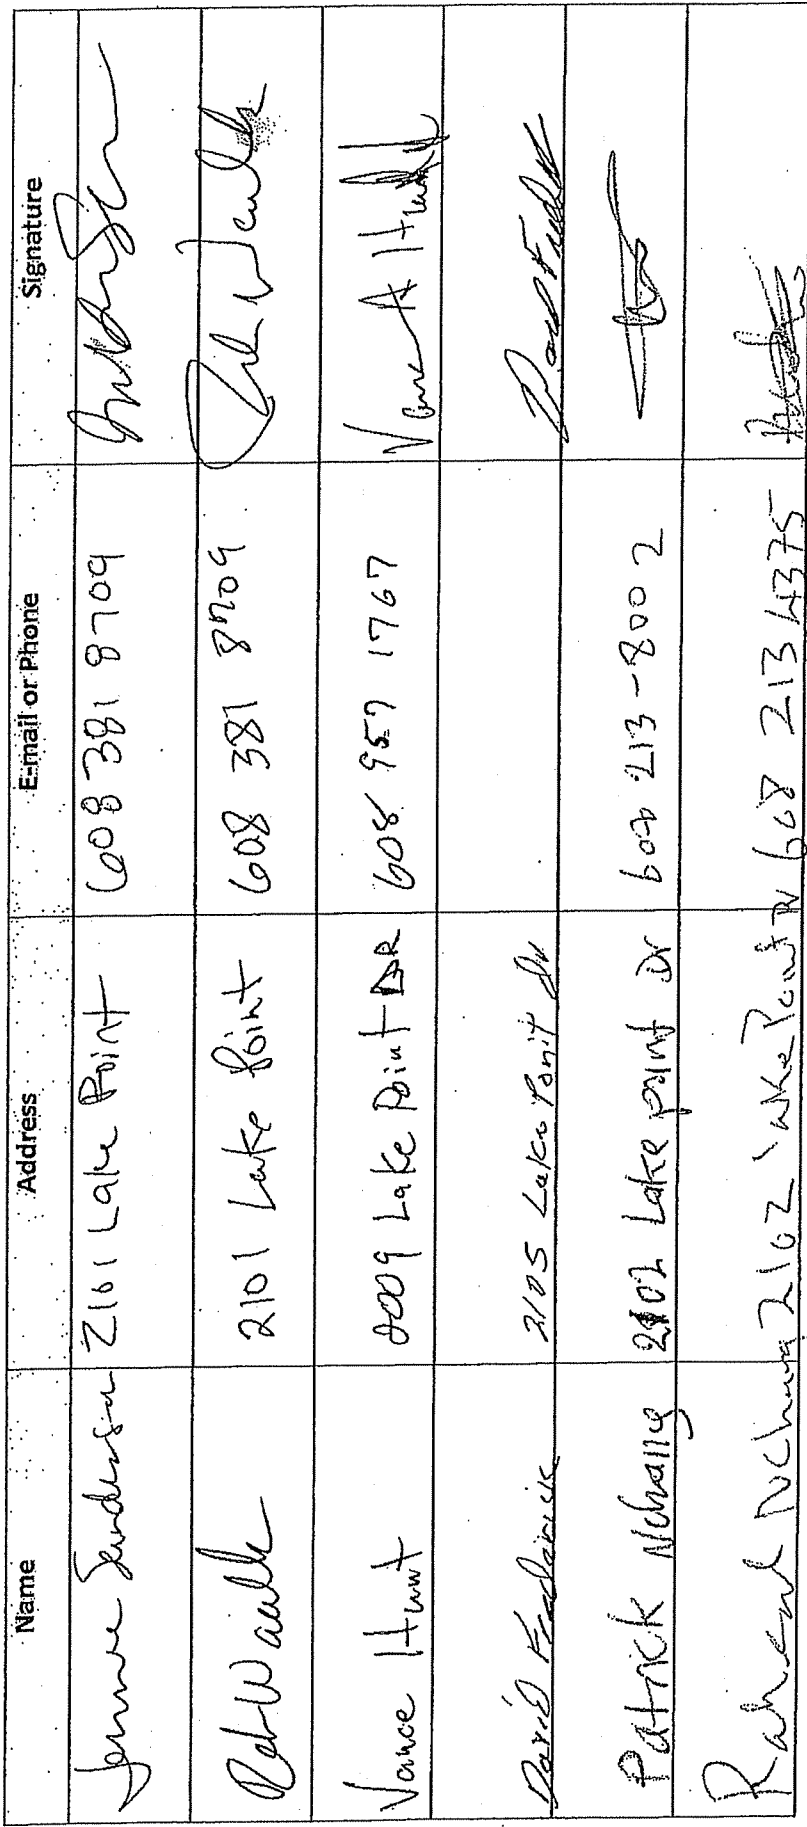 Name Address E-mail or Phone Signature
2101 Lake Point 608 381 8709
Rob 2101 Lake Point 608 381 8709
Vance Hunt 2009 Lake Point DR 608 957 1767 Vance A Hunt
David Frederick 2105 Lake Ponit Dr
Patrick Nchang 2102 Lake point Dr 608 213-8002
2102 Lake Point Dr 608 213 4375